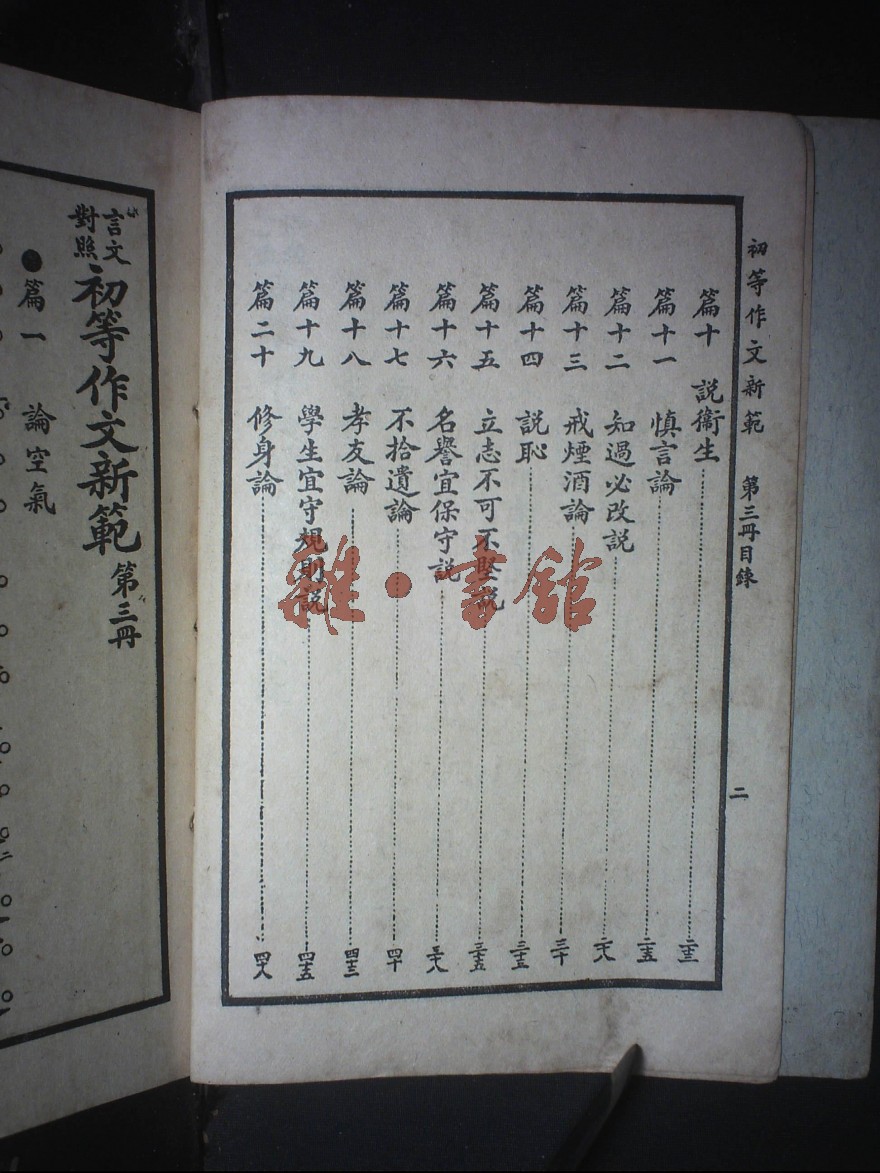 初等作文新範　第三冊目錄　二
篇十　說衞生……二十三
篇十一　慎言論……二十五
篇十二　知過必改說……二十八
篇十三　戒煙酒論……三十
篇十四　說恥
篇十五　立志不可不堅說……三十五
篇十六　名譽宜保守說……三十八
篇十七　不拾遺論……四十
篇十八　孝友論……四十三
篇十九　學生宜守規則說……四十五
篇二十　修身論……四十八
言文對照初等作文新範　第三冊
●篇一　論空氣
雜·書館